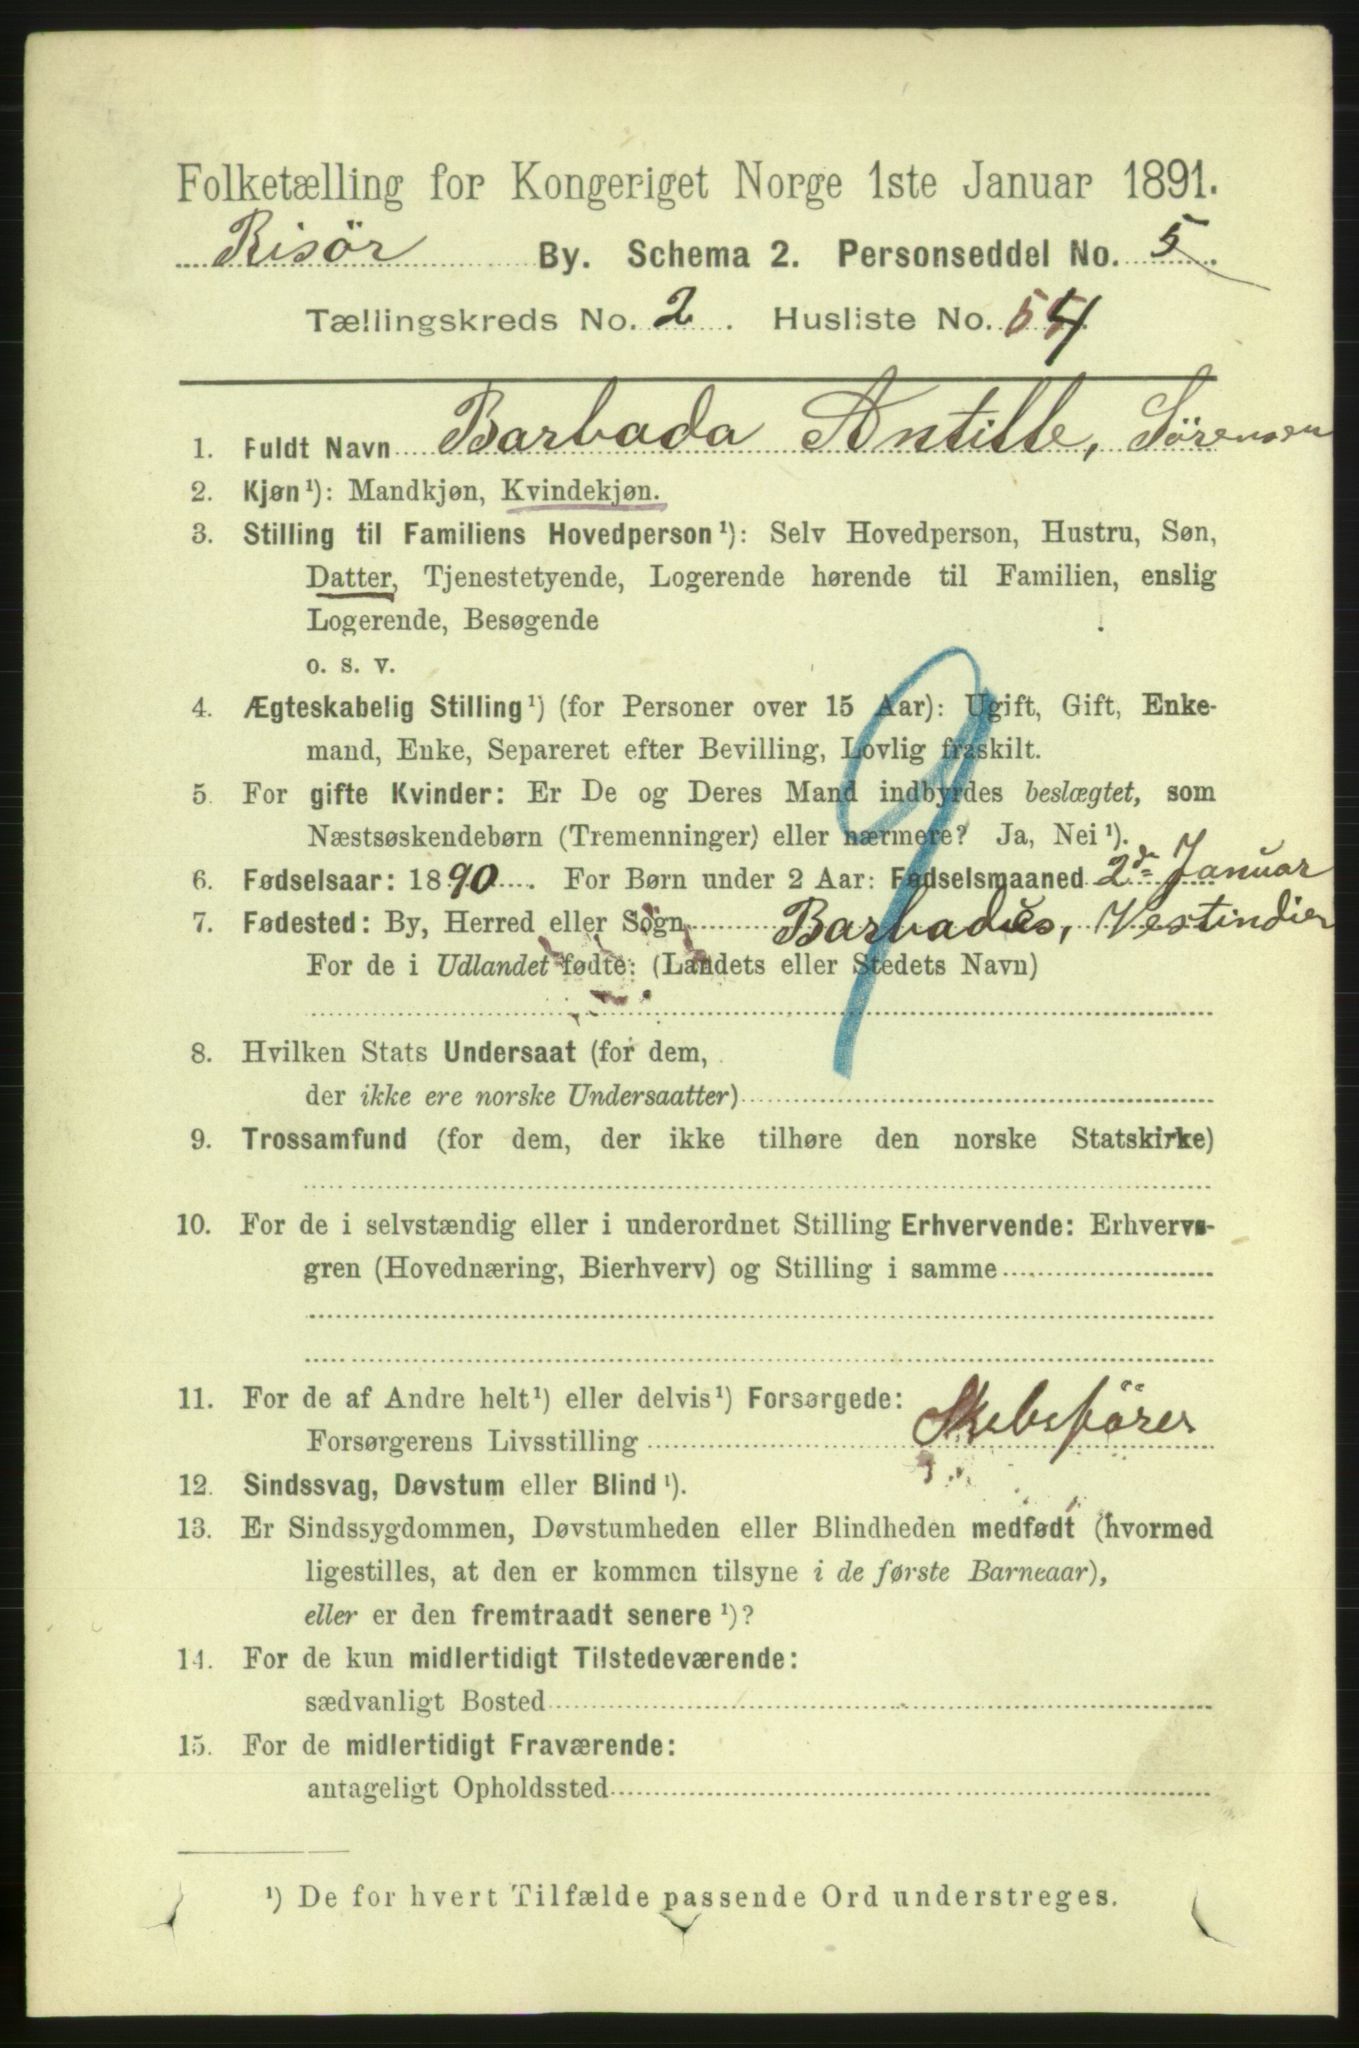 Folketælling for Kongeriget Norge 1ste Januar 1891.
Risör By. Schema 2. Personseddel No. 5
Tællingskreds No. 2. Husliste No. 54
1. Fuldt Navn Barbada Antille, Sörensen
2. Kjøn¹): Mandkjøn, Kvindekjøn.
3. Stilling til Familiens Hovedperson¹): Selv Hovedperson, Hustru, Søn,
Datter, Tjenestetyende, Logerende hørende til Familien, enslig
Logerende, Besøgende
o. s. v.
4. Ægteskabelig Stilling¹) (for Personer over 15 Aar): Ugift, Gift, Enke-
mand, Enke, Separeret efter Bevilling, Lovlig fraskilt.
5. For gifte Kvinder: Er De og Deres Mand indbyrdes beslægtet, som
Næstsøskendebørn (Tremenninger) eller nærmere? Ja, Nei¹).
6. Fødselsaar: 1890. For Børn under 2 Aar: Fødselsmaaned 2de Januar
7. Fødested: By, Herred eller Sogn Barbados, Vestindien
For de i Udlandet fødte: (Landets eller Stedets Navn)
8. Hvilken Stats Undersaat (for dem,
der ikke ere norske Undersaatter)
9. Trossamfund (for dem, der ikke tilhøre den norske Statskirke)
10. For de i selvstændig eller i underordnet Stilling Erhvervende: Erhvervs-
gren (Hovednæring, Bierhverv) og Stilling i samme
11. For de af Andre helt¹) eller delvis¹) Forsørgede:
Forsørgerens Livsstilling Skibsförer
12. Sindssvag, Døvstum eller Blind¹).
13. Er Sindssygdommen, Døvstumheden eller Blindheden medfødt (hvormed
ligestilles, at den er kommen tilsyne i de første Barneaar),
eller er den fremtraadt senere¹)?
14. For de kun midlertidigt Tilstedeværende:
sædvanligt Bosted
15. For de midlertidigt Fraværende:
antageligt Opholdssted
¹) De for hvert Tilfælde passende Ord understreges.
9